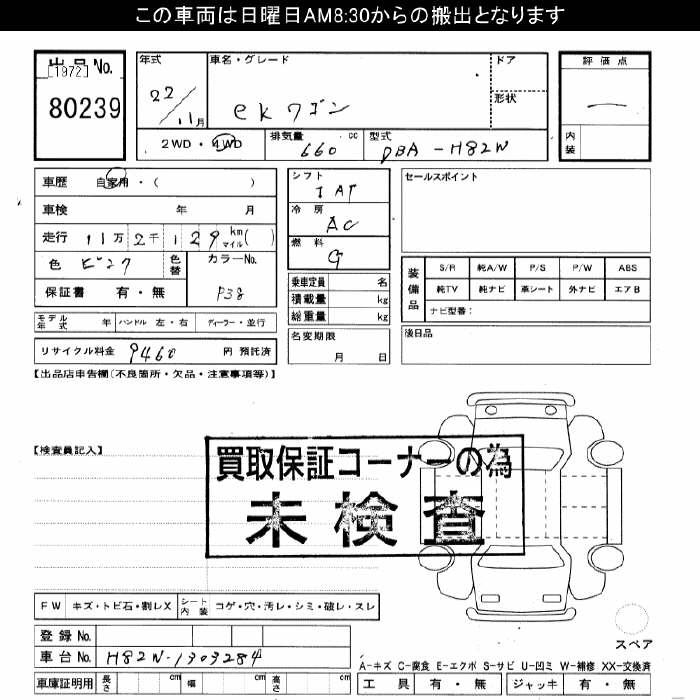 この車両は日曜日AM8:30からの搬出となります
出品No.
[1972]
80239
年式 22/11月
車名・グレード ekワゴン
ドア
形状
評価点 —
内装
2WD・4WD
排気量 660 cc
型式 DBA-H82W
車歴 自家用・( )
車検 年 月
走行 11万2千129 km マイル( )
色 ピンク
色替
カラーNo. P38
保証書 有・無
シフト IAT
冷房 AC
燃料 G
乗車定員 名
積載量 kg
総重量 kg
名変期限 月 日
セールスポイント
装備品
S/R 純A/W P/S P/W ABS
純TV 純ナビ 革シート 外ナビ エアB
ナビ型番:
後日品
モデル年式 年 ハンドル 左・右 ディーラー・並行
リサイクル料金 9460 円 預託済
【出品店申告欄(不良箇所・欠品・注意事項等)】
【検査員記入】
買取保証コーナーの為
未検査
FW キズ・トビ石・割レX シート内装 コゲ・穴・汚レ・シミ・破レ・スレ
スペア
登録No.
車台No. H82W-1303284
A-キズ C-腐食 E-エクボ S-サビ U-凹ミ W-補修 XX-交換済
車庫証明用 長さ cm 幅 cm 高さ cm
工具 有・無 ジャッキ 有・無